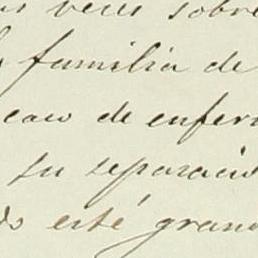 veces sobre
familia de
caso de enferm
su separació
está grand